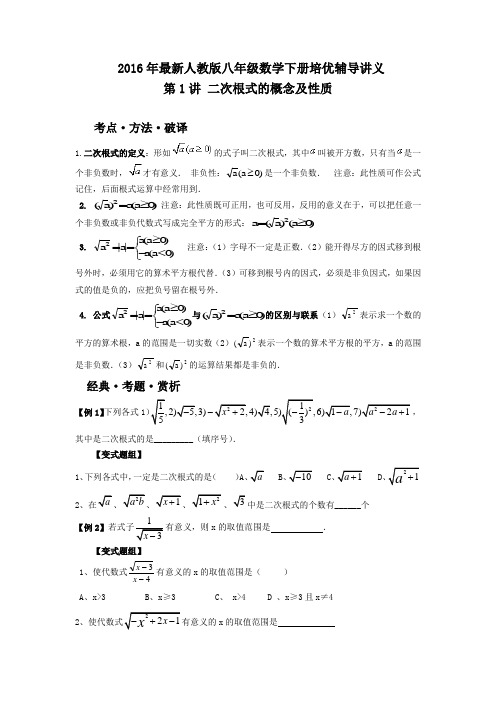 2016年最新人教版八年级数学下册培优辅导讲义
第1讲 二次根式的概念及性质
考点·方法·破译
1.二次根式的定义：形如√a(a≥0)的式子叫二次根式，其中a叫被开方数，只有当a是一
个非负数时，√a才有意义． 非负性：√a(a≥0)是一个非负数． 注意：此性质可作公式
记住，后面根式运算中经常用到．
2. (√a)²=a(a≥0) 注意：此性质既可正用，也可反用，反用的意义在于，可以把任意一
个非负数或非负代数式写成完全平方的形式：a=(√a)²(a≥0)
3. √a²=|a|={a(a≥0) -a(a<0) 注意：（1）字母不一定是正数．（2）能开得尽方的因式移到根
号外时，必须用它的算术平方根代替．（3）可移到根号内的因式，必须是非负因式，如果因
式的值是负的，应把负号留在根号外．
4. 公式√a²=|a|={a(a≥0) -a(a<0) 与(√a)²=a(a≥0)的区别与联系（1）√a²表示求一个数的
平方的算术根，a的范围是一切实数（2）(√a)²表示一个数的算术平方根的平方，a的范围
是非负数．（3）√a²和(√a)²的运算结果都是非负的．
经典·考题·赏析
【例1】下列各式1)√(1/5),2)√-5,3)-√(x²+2),4)√4,5)√((-1/3)²),6)√(1-a),7)√(a²-2a+1)，
其中是二次根式的是_________（填序号）．
【变式题组】
1、下列各式中，一定是二次根式的是（ ）A、√a B、√-10 C、√(a+1) D、√(a²+1)
2、在√a、√(a²b)、√(x+1)、√(1+x²)、√3中是二次根式的个数有______个
【例2】若式子1/√(x-3)有意义，则x的取值范围是 ．
【变式题组】
1、使代数式√(x-3)/(x-4)有意义的x的取值范围是（ ）
A、x>3 B、x≥3 C、 x>4 D 、x≥3且x≠4
2、使代数式√(-x²+2x-1)有意义的x的取值范围是